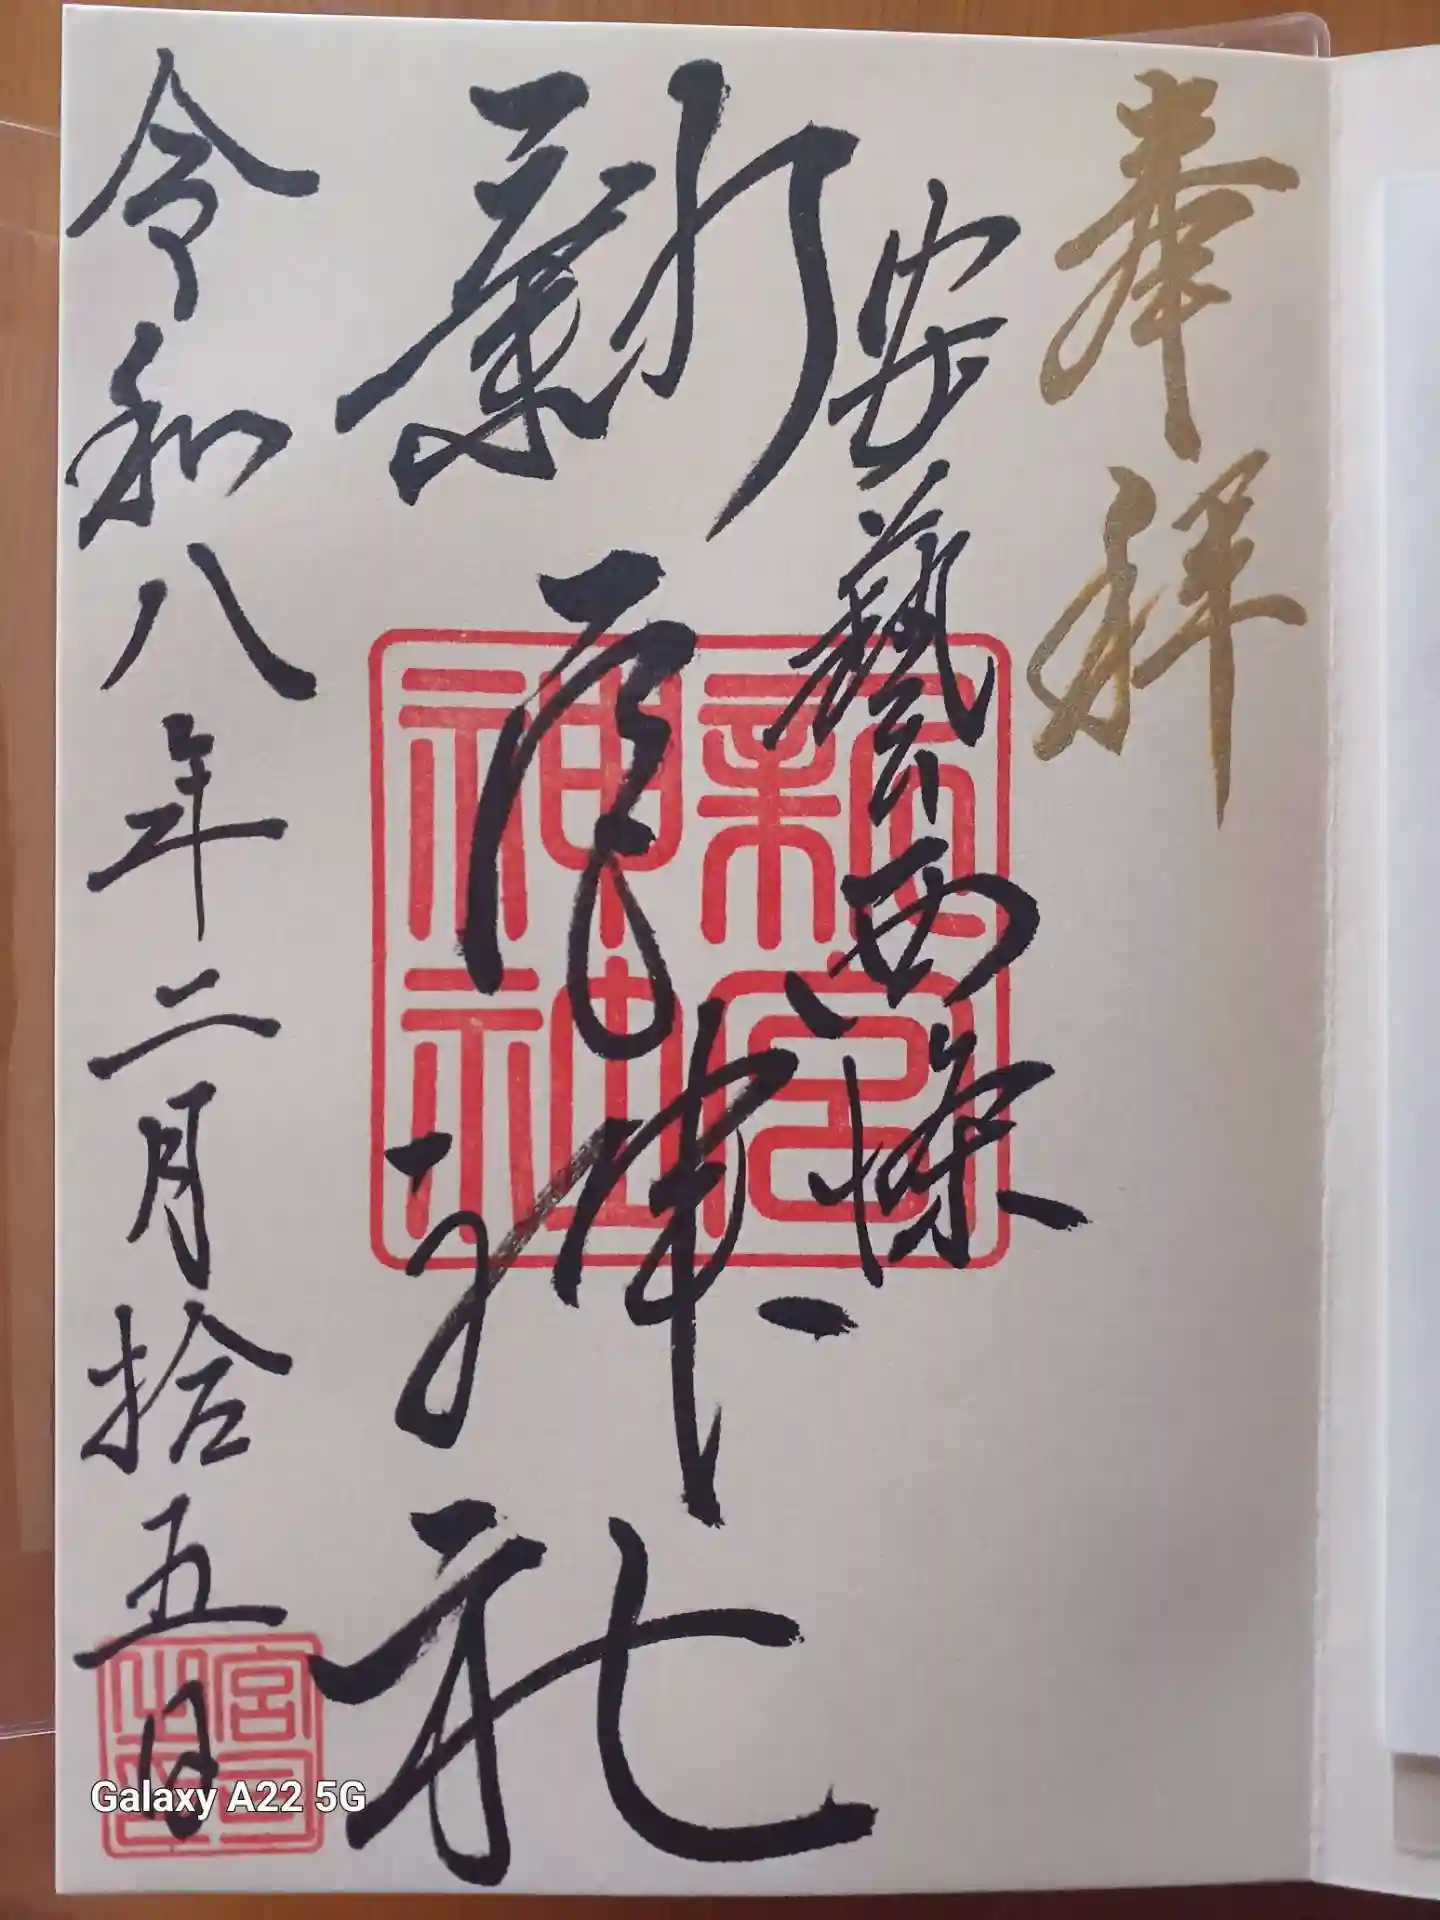 奉拝
安藝西條
新宮神社
新宮神社
令和八年二月拾五日
宮司之印
Galaxy A22 5G